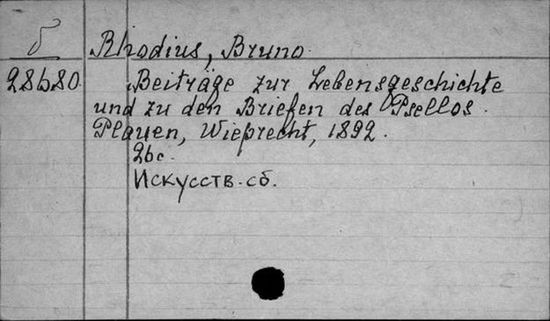 б
Rhodius, Bruno.
28680
Beiträge zur Lebensgeschichte
und zu den Briefen des Psellos.
Plauen, Wieprecht, 1892.
26 с.
Искусств. сб.